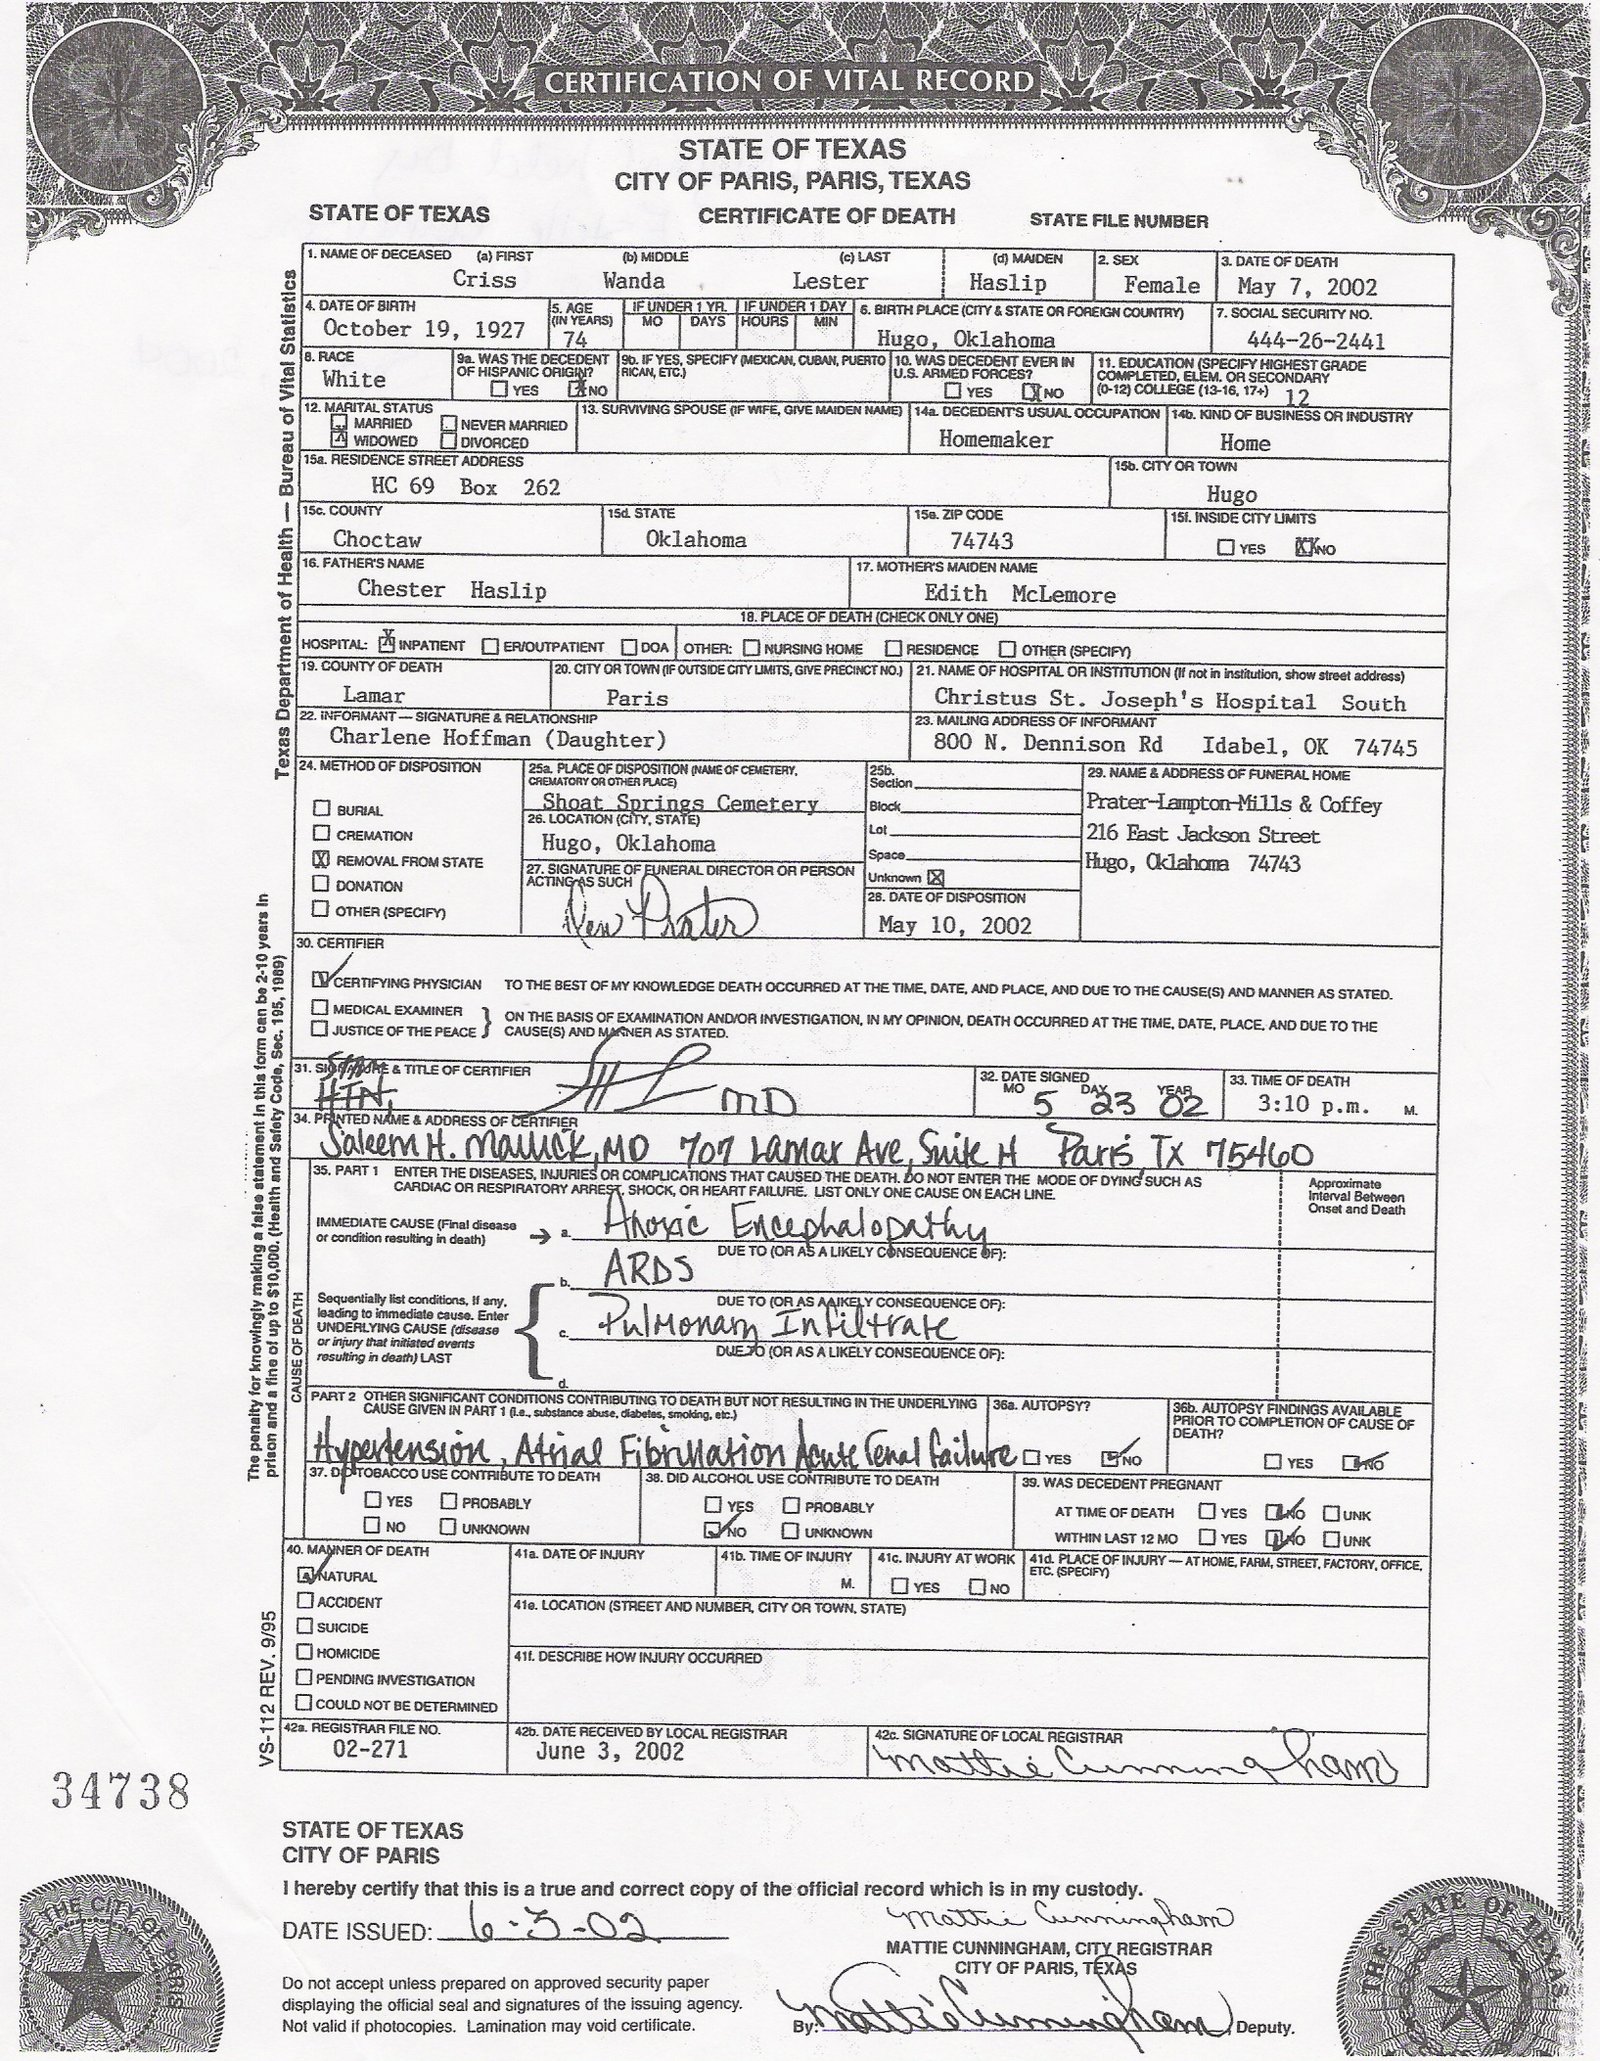 CERTIFICATION OF VITAL RECORD
STATE OF TEXAS
CITY OF PARIS, PARIS, TEXAS
STATE OF TEXAS CERTIFICATE OF DEATH STATE FILE NUMBER
1. NAME OF DECEASED (a) FIRST (b) MIDDLE (c) LAST (d) MAIDEN 2. SEX 3. DATE OF DEATH
Criss Wanda Lester Haslip Female May 7, 2002
4. DATE OF BIRTH 5. AGE (IN YEARS) IF UNDER 1 YR. MO DAYS IF UNDER 1 DAY HOURS MIN 6. BIRTH PLACE (CITY & STATE OR FOREIGN COUNTRY) 7. SOCIAL SECURITY NO.
October 19, 1927 74 Hugo, Oklahoma 444-26-2441
8. RACE 9a. WAS THE DECEDENT OF HISPANIC ORIGIN? 9b. IF YES, SPECIFY (MEXICAN, CUBAN, PUERTO RICAN, ETC.) 10. WAS DECEDENT EVER IN U.S. ARMED FORCES? 11. EDUCATION (SPECIFY HIGHEST GRADE COMPLETED, ELEM. OR SECONDARY (0-12) COLLEGE (13-16, 17+) 12
White YES X NO YES X NO
12. MARITAL STATUS 13. SURVIVING SPOUSE (IF WIFE, GIVE MAIDEN NAME) 14a. DECEDENT'S USUAL OCCUPATION 14b. KIND OF BUSINESS OR INDUSTRY
MARRIED NEVER MARRIED
X WIDOWED DIVORCED Homemaker Home
15a. RESIDENCE STREET ADDRESS 15b. CITY OR TOWN
HC 69 Box 262 Hugo
15c. COUNTY 15d. STATE 15e. ZIP CODE 15f. INSIDE CITY LIMITS
Choctaw Oklahoma 74743 YES XX NO
16. FATHER'S NAME 17. MOTHER'S MAIDEN NAME
Chester Haslip Edith McLemore
18. PLACE OF DEATH (CHECK ONLY ONE)
HOSPITAL: X INPATIENT ER/OUTPATIENT DOA OTHER: NURSING HOME RESIDENCE OTHER (SPECIFY)
19. COUNTY OF DEATH 20. CITY OR TOWN (IF OUTSIDE CITY LIMITS, GIVE PRECINCT NO.) 21. NAME OF HOSPITAL OR INSTITUTION (If not in institution, show street address)
Lamar Paris Christus St. Joseph's Hospital South
22. INFORMANT — SIGNATURE & RELATIONSHIP 23. MAILING ADDRESS OF INFORMANT
Charlene Hoffman (Daughter) 800 N. Dennison Rd Idabel, OK 74745
24. METHOD OF DISPOSITION
BURIAL
CREMATION
X REMOVAL FROM STATE
DONATION
OTHER (SPECIFY)
25a. PLACE OF DISPOSITION (NAME OF CEMETERY, CREMATORY OR OTHER PLACE)
Shoat Springs Cemetery
26. LOCATION (CITY, STATE)
Hugo, Oklahoma
27. SIGNATURE OF FUNERAL DIRECTOR OR PERSON ACTING AS SUCH
Prater
25b.
Section
Block
Lot
Space
Unknown X
28. DATE OF DISPOSITION
May 10, 2002
29. NAME & ADDRESS OF FUNERAL HOME
Prater-Lampton-Mills & Coffey
216 East Jackson Street
Hugo, Oklahoma 74743
30. CERTIFIER
CERTIFYING PHYSICIAN TO THE BEST OF MY KNOWLEDGE DEATH OCCURRED AT THE TIME, DATE, AND PLACE, AND DUE TO THE CAUSE(S) AND MANNER AS STATED.
MEDICAL EXAMINER
JUSTICE OF THE PEACE } ON THE BASIS OF EXAMINATION AND/OR INVESTIGATION, IN MY OPINION, DEATH OCCURRED AT THE TIME, DATE, PLACE, AND DUE TO THE CAUSE(S) AND MANNER AS STATED.
31. SIGNATURE & TITLE OF CERTIFIER 32. DATE SIGNED MO DAY YEAR 33. TIME OF DEATH
HTN, MD 5 23 02 3:10 p.m. M.
34. PRINTED NAME & ADDRESS OF CERTIFIER
Saleem H. Mallick, MD 707 Lamar Ave, Suite H Paris, TX 75460
35. PART 1 ENTER THE DISEASES, INJURIES OR COMPLICATIONS THAT CAUSED THE DEATH. DO NOT ENTER THE MODE OF DYING SUCH AS CARDIAC OR RESPIRATORY ARREST, SHOCK, OR HEART FAILURE. LIST ONLY ONE CAUSE ON EACH LINE.
Approximate Interval Between Onset and Death
IMMEDIATE CAUSE (Final disease or condition resulting in death) → a. Anoxic Encephalopathy
DUE TO (OR AS A LIKELY CONSEQUENCE OF):
b. ARDS
DUE TO (OR AS A LIKELY CONSEQUENCE OF):
Sequentially list conditions, if any, leading to immediate cause. Enter UNDERLYING CAUSE (disease or injury that initiated events resulting in death) LAST
c. Pulmonary Infiltrate
DUE TO (OR AS A LIKELY CONSEQUENCE OF):
d.
CAUSE OF DEATH
PART 2 OTHER SIGNIFICANT CONDITIONS CONTRIBUTING TO DEATH BUT NOT RESULTING IN THE UNDERLYING CAUSE GIVEN IN PART 1 (i.e., substance abuse, diabetes, smoking, etc.)
Hypertension, Atrial Fibrillation Acute renal failure
36a. AUTOPSY? YES NO
36b. AUTOPSY FINDINGS AVAILABLE PRIOR TO COMPLETION OF CAUSE OF DEATH? YES NO
37. DID TOBACCO USE CONTRIBUTE TO DEATH
YES PROBABLY
NO UNKNOWN
38. DID ALCOHOL USE CONTRIBUTE TO DEATH
YES PROBABLY
NO UNKNOWN
39. WAS DECEDENT PREGNANT
AT TIME OF DEATH YES NO UNK
WITHIN LAST 12 MO YES NO UNK
40. MANNER OF DEATH
NATURAL
ACCIDENT
SUICIDE
HOMICIDE
PENDING INVESTIGATION
COULD NOT BE DETERMINED
41a. DATE OF INJURY 41b. TIME OF INJURY M. 41c. INJURY AT WORK YES NO 41d. PLACE OF INJURY — AT HOME, FARM, STREET, FACTORY, OFFICE, ETC. (SPECIFY)
41e. LOCATION (STREET AND NUMBER, CITY OR TOWN, STATE)
41f. DESCRIBE HOW INJURY OCCURRED
42a. REGISTRAR FILE NO. 42b. DATE RECEIVED BY LOCAL REGISTRAR 42c. SIGNATURE OF LOCAL REGISTRAR
02-271 June 3, 2002 Mattie Cunningham
Texas Department of Health — Bureau of Vital Statistics
The penalty for knowingly making a false statement in this form can be 2-10 years in prison and a fine of up to $10,000. (Health and Safety Code, Sec. 195, 1989)
VS-112 REV. 9/95
34738
STATE OF TEXAS
CITY OF PARIS
I hereby certify that this is a true and correct copy of the official record which is in my custody.
DATE ISSUED: 6-3-02
Mattie Cunningham
MATTIE CUNNINGHAM, CITY REGISTRAR
CITY OF PARIS, TEXAS
Do not accept unless prepared on approved security paper
displaying the official seal and signatures of the issuing agency.
Not valid if photocopies. Lamination may void certificate.
By: Mattie Cunningham, Deputy.
THE CITY OF PARIS
THE STATE OF TEXAS